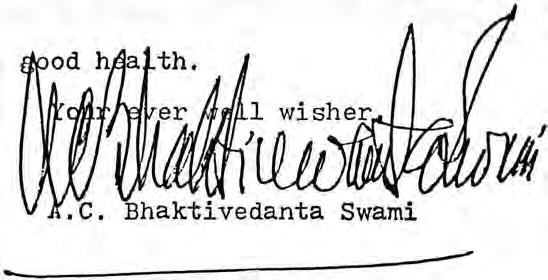 good health.
Your ever well wisher,
A.C. Bhaktivedanta Swami
A.C. Bhaktivedanta Swami